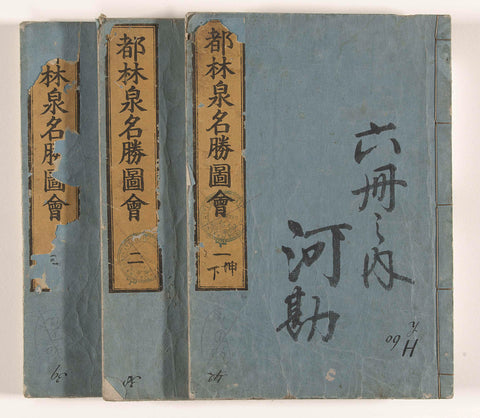 都林泉名勝圖會
一
坤
下
六冊之内
河勘
H 60
42
都林泉名勝圖會
二
林泉名勝圖會
三
39